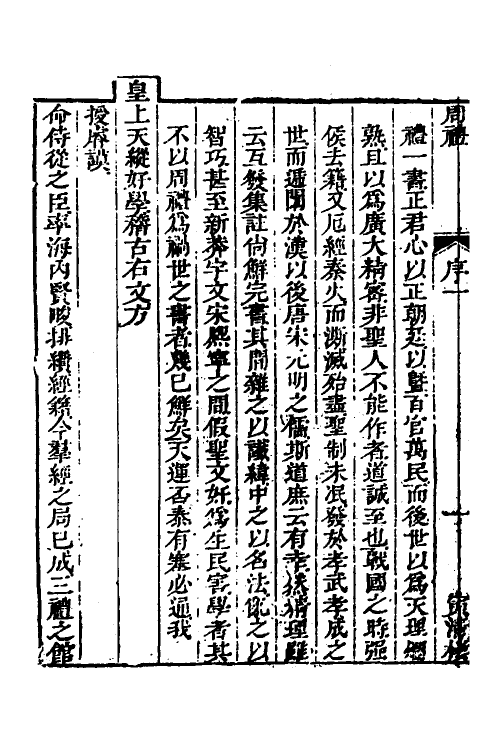 周禮 序一
禮一書正君心以正朝廷以曁百官萬民而後世以爲天理爛
熟且以爲廣大精密非聖人不能作者道誠至也戰國之時強
侯去籍又厄經秦火而澌滅殆盡聖制未泯發於孝武孝成之
世而遞闡於漢以後唐宋元明之儒斯道庶云有幸然猶理雖
云互發集註尙鮮完書其間雜之以讖緯中之以名法僞之以
智巧甚至新莽宇文宋熙寧之間假聖文奸爲生民害學者其
不以周禮爲禍世之書者幾已鮮矣天運否泰有塞必通我
皇上天縱好學稽古右文方
授
命侍從之臣率海內賢畯排纘經籍今羣經之局已成三禮之館